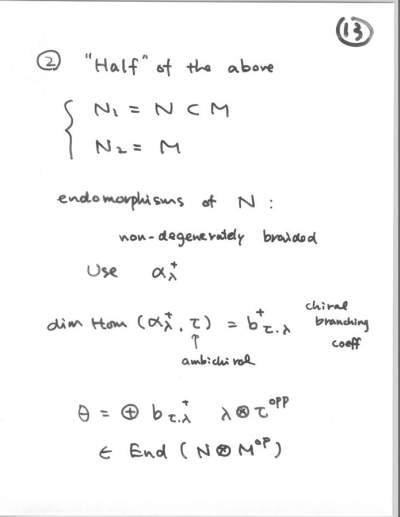 13
② "Half" of the above
N₁ = N ⊂ M
N₂ = M
endomorphisms of N :
non-degenerately braided
Use α_λ^+
dim Hom (α_λ^+, τ) = b_{τ.λ}^+ chiral branching coeff
↑
ambichiral
θ = ⊕ b_{τ.λ}^+ λ ⊗ τ^{opp}
∈ End (N ⊗ M^{op})